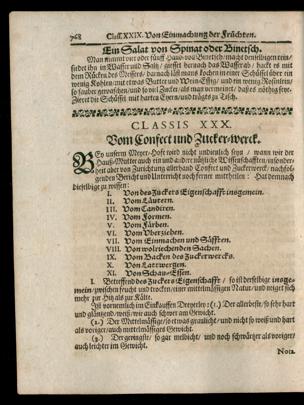 768 Class. XXIX. Von Einmachung der Früchten.
Ein Salat von Spinat oder Binetsch.
Man nimmt vier oder fünff Hand-voll Binetsch/ macht denselbigen rein/
siedet ihn in Wasser und Saltz/ giesset hernach das Wasser ab/ hackt es mit
dem Rücken des Messers/ darnach läst mans kochen in einer Schüssel über ein
wenig Kohlen/ mit etwas Butter und Wein-Essig/ und ein wenig Rosinlein/
so sauber gewaschen/ und so viel Zucker/ als man vermeinet/ daß es nöthig seye.
Zieret die Schüssel mit harten Eyern/ und trägts zu Tisch.
CLASSIS XXX.
Vom Confect und Zucker-werck.
Bey unserm Meyer-Hofe wird nicht undienlich seyn / wann wir der
Hauß-Mutter auch ein und andere nützliche Wissenschafften/ insonder-
heit aber von Zurichtung allerhand Confect und Zuckerwerck/ nachfol-
genden Bericht und Unterricht noch ferner mittheilen: Hat demnach
dieselbige zu wissen:
I. Von des Zuckers Eigenschafft insgemein.
II. Vom Läutern.
III. Vom Candiren.
IV. Vom Formen.
V. Vom Färben.
VI. Vom Uberziehen.
VII. Vom Einmachen und Säfften.
VIII. Von wolriechenden Sachen.
IX. Vom Backen des Zuckerwercks.
X. Von Lattwergen.
XI. Von Schau-Essen.
I. Betreffend des Zuckers Eigenschafft / so ist derselbige insge-
mein/ zwischen feucht und trocken/ einer mittelmässigen Natur/ und neiget sich
mehr zur Hitz als zur Kälte.
Ist vornemlich im Einkauffen Dreyerley: (1.) Der allerbeste/ so sehr hart
und gläntzend/ weiß/ wie auch schwer am Gewicht.
(2.) Der Mittelmässige/ so etwas graulicht/ und nicht so weiß und hart
als voriger/ auch mittelmässiges Gewicht.
(3.) Der geringste/ so gar melbicht/ und noch schwärtzer als voriger/
auch leichter im Gewicht.
Nota.